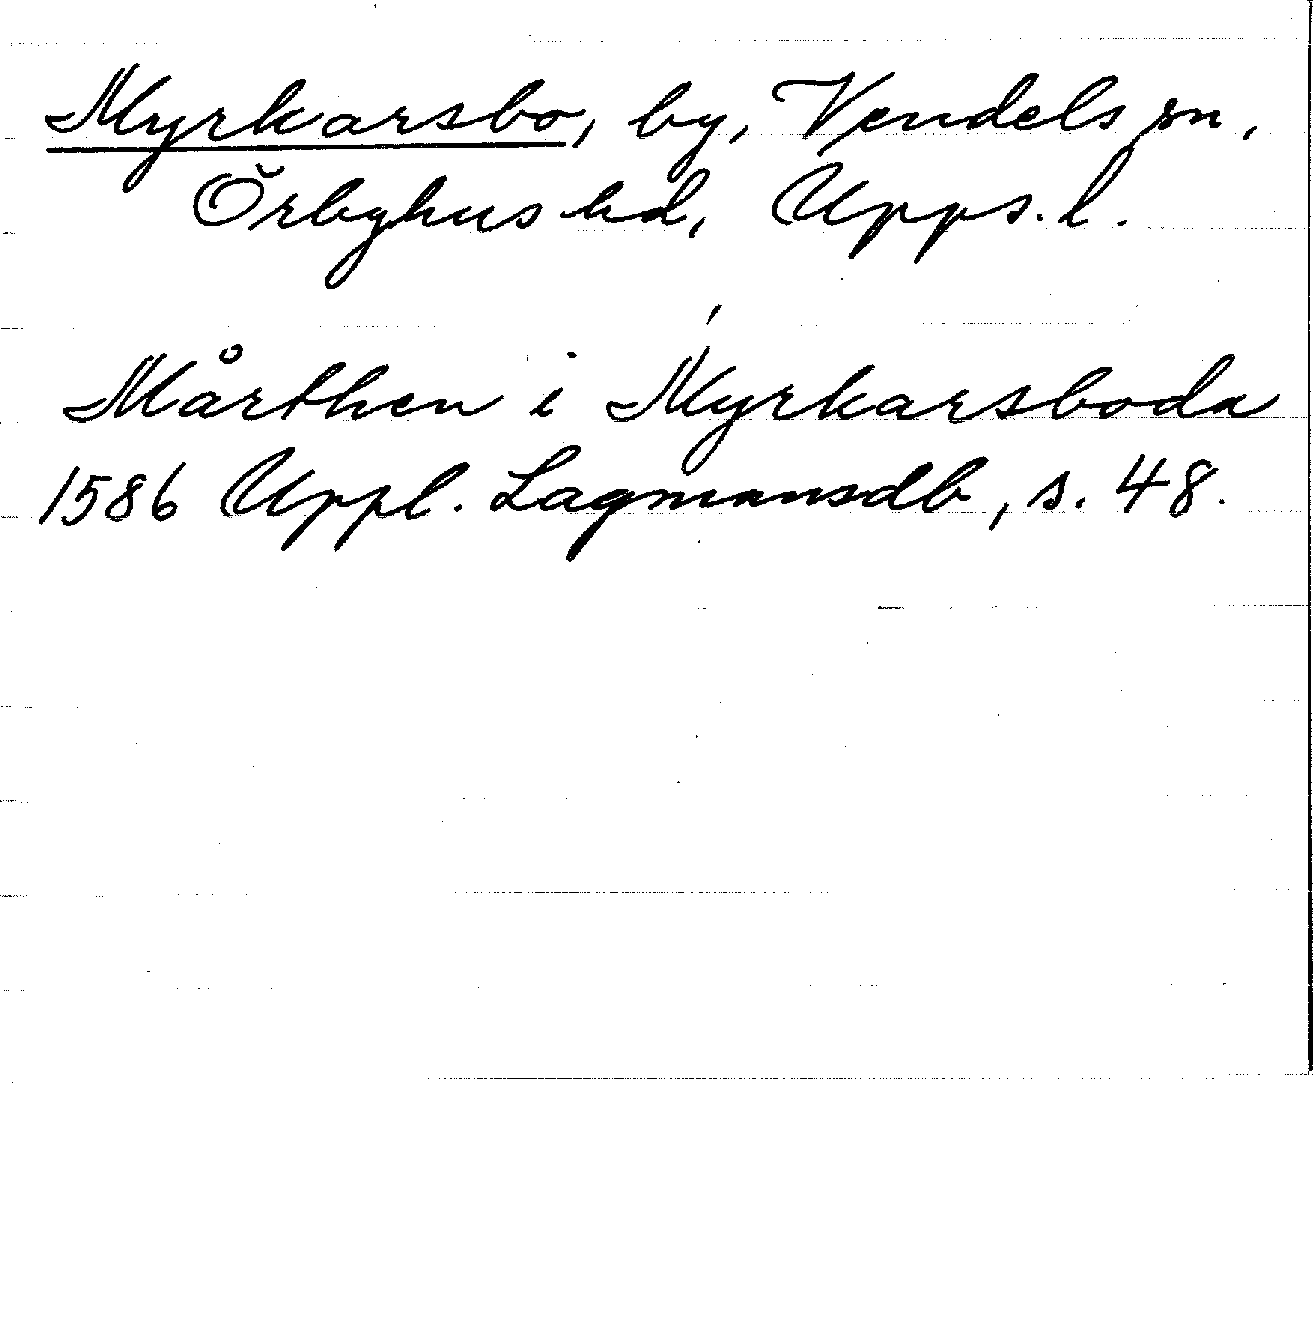 Myrkarsbo, by, Vendels sn,
Örbyhus hd, Upps. l.
Mårthen i Myrkarsboda
1586 Uppl. Lagmansdb, s. 48.